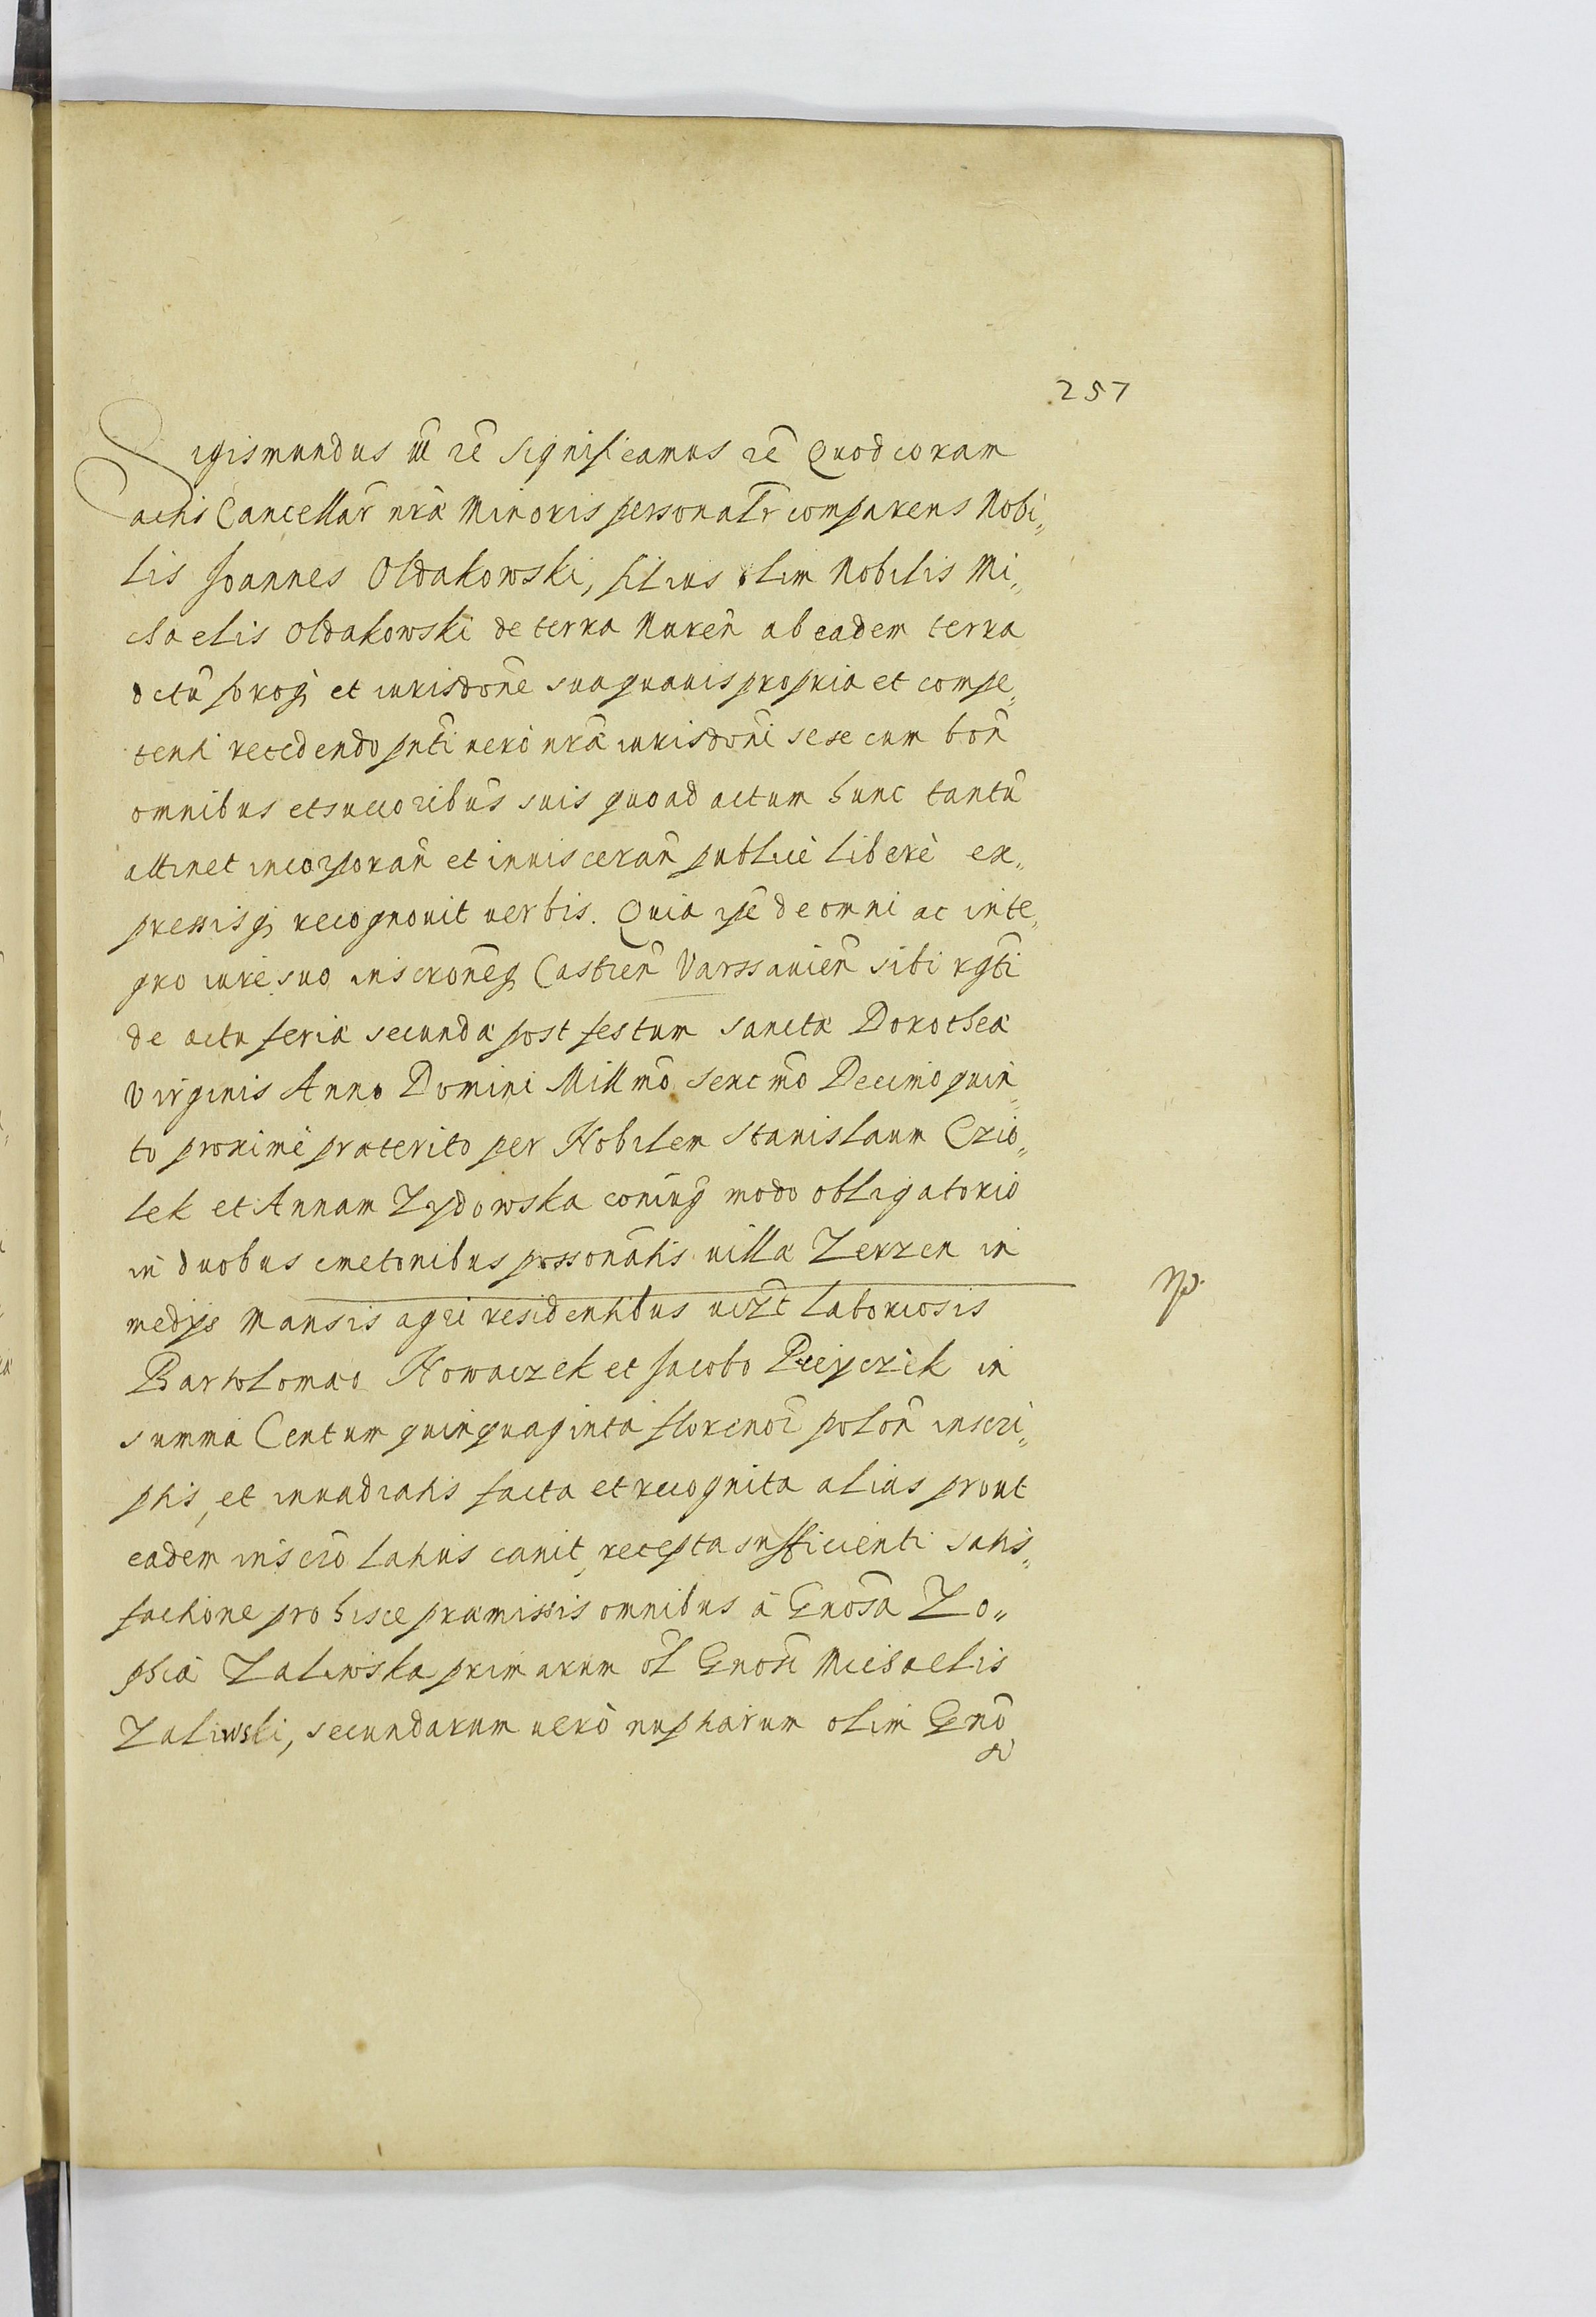 257
Sigismundus III rē significamus rē Quod coram
actis Cancellar̃ nrã Minoris personalr̃ comparens Nobi„
lis Joannes Oldakowski, filius olim Nobilis Mi„
chaelis Oldakowski de terra Nuren̄ ab eadem terra
dctũ proq; et iurisdon̄e sua quauis propria et compe„
tenti recedendo pnti vero nrã iurisdoni sese cum bon̄
omnibus et succoribus suis quoad actum hunc tantũ
attinet incorporan̄ et inuisceran̄ publicè liberè ex„
pressisq; recognouit verbis. Quia ipse de omni ac inte„
gro iure suo inscron̄eq; Castren̄ Varssauien̄ sibi rgti
de actu feria secunda post festum sancta Dorothea
Virginis Anno Domini Millmõ sexcmõ Decimo quin„
to proximè praterito per Nobilem Stanislaum Czio„
lek et Annam Zydowska coniug̃ modo obligatorio
in duobus cmetonibus possonatis villa Zerzen in
np.
medys Mansis agri residentibus vizt laboriosis
Bartolomao Nowaczek et Jacobo in
summa Centum quinquaginta florenor̃ polon̄ inscri„
ptis, et inuadiatis facta et recognita alias prout
eadem inscrõ latius canit, recepta sufficienti satis„
factione pro hisce pramissis omnibus à Gnosa Zo„
phia Zaliwska primarum ol̃ Gnosi Michaelis
Zaliwski, secundarum verò nuptiarum olim Gno
si